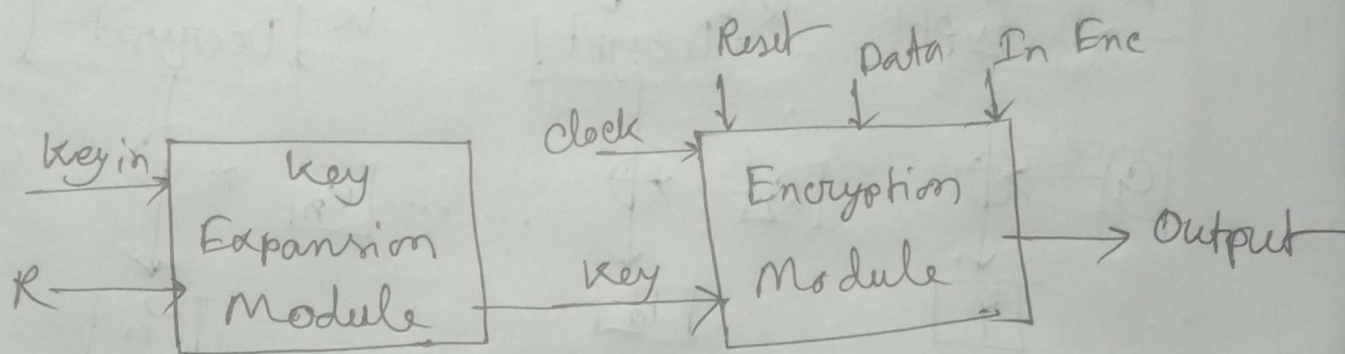 Reset Data In Enc
Clock
Key in
Key
Expansion
Module
R
Key
Encryption
Module
Output